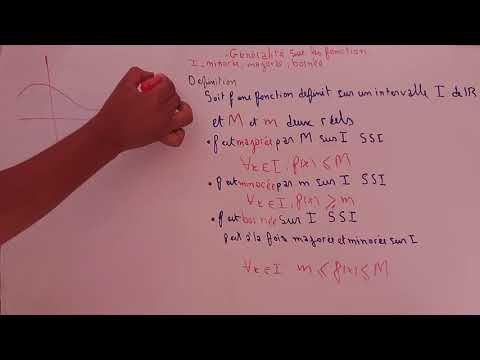 -Généralité sur les fonction
I_minorée, majorée, bornée
Definition
Soit f une fonction definit sur un intervalle I de IR
et M et m deux réels
• f est majorée par M sur I SSI
∀x ∈ I, f(x) ≤ M
• f est minorée par m sur I SSI
∀x ∈ I, f(x) ≥ m
• f est bornée sur I SSI
f est à la fois majorée et minorée sur I
∀x ∈ I m ≤ f(x) ≤ M